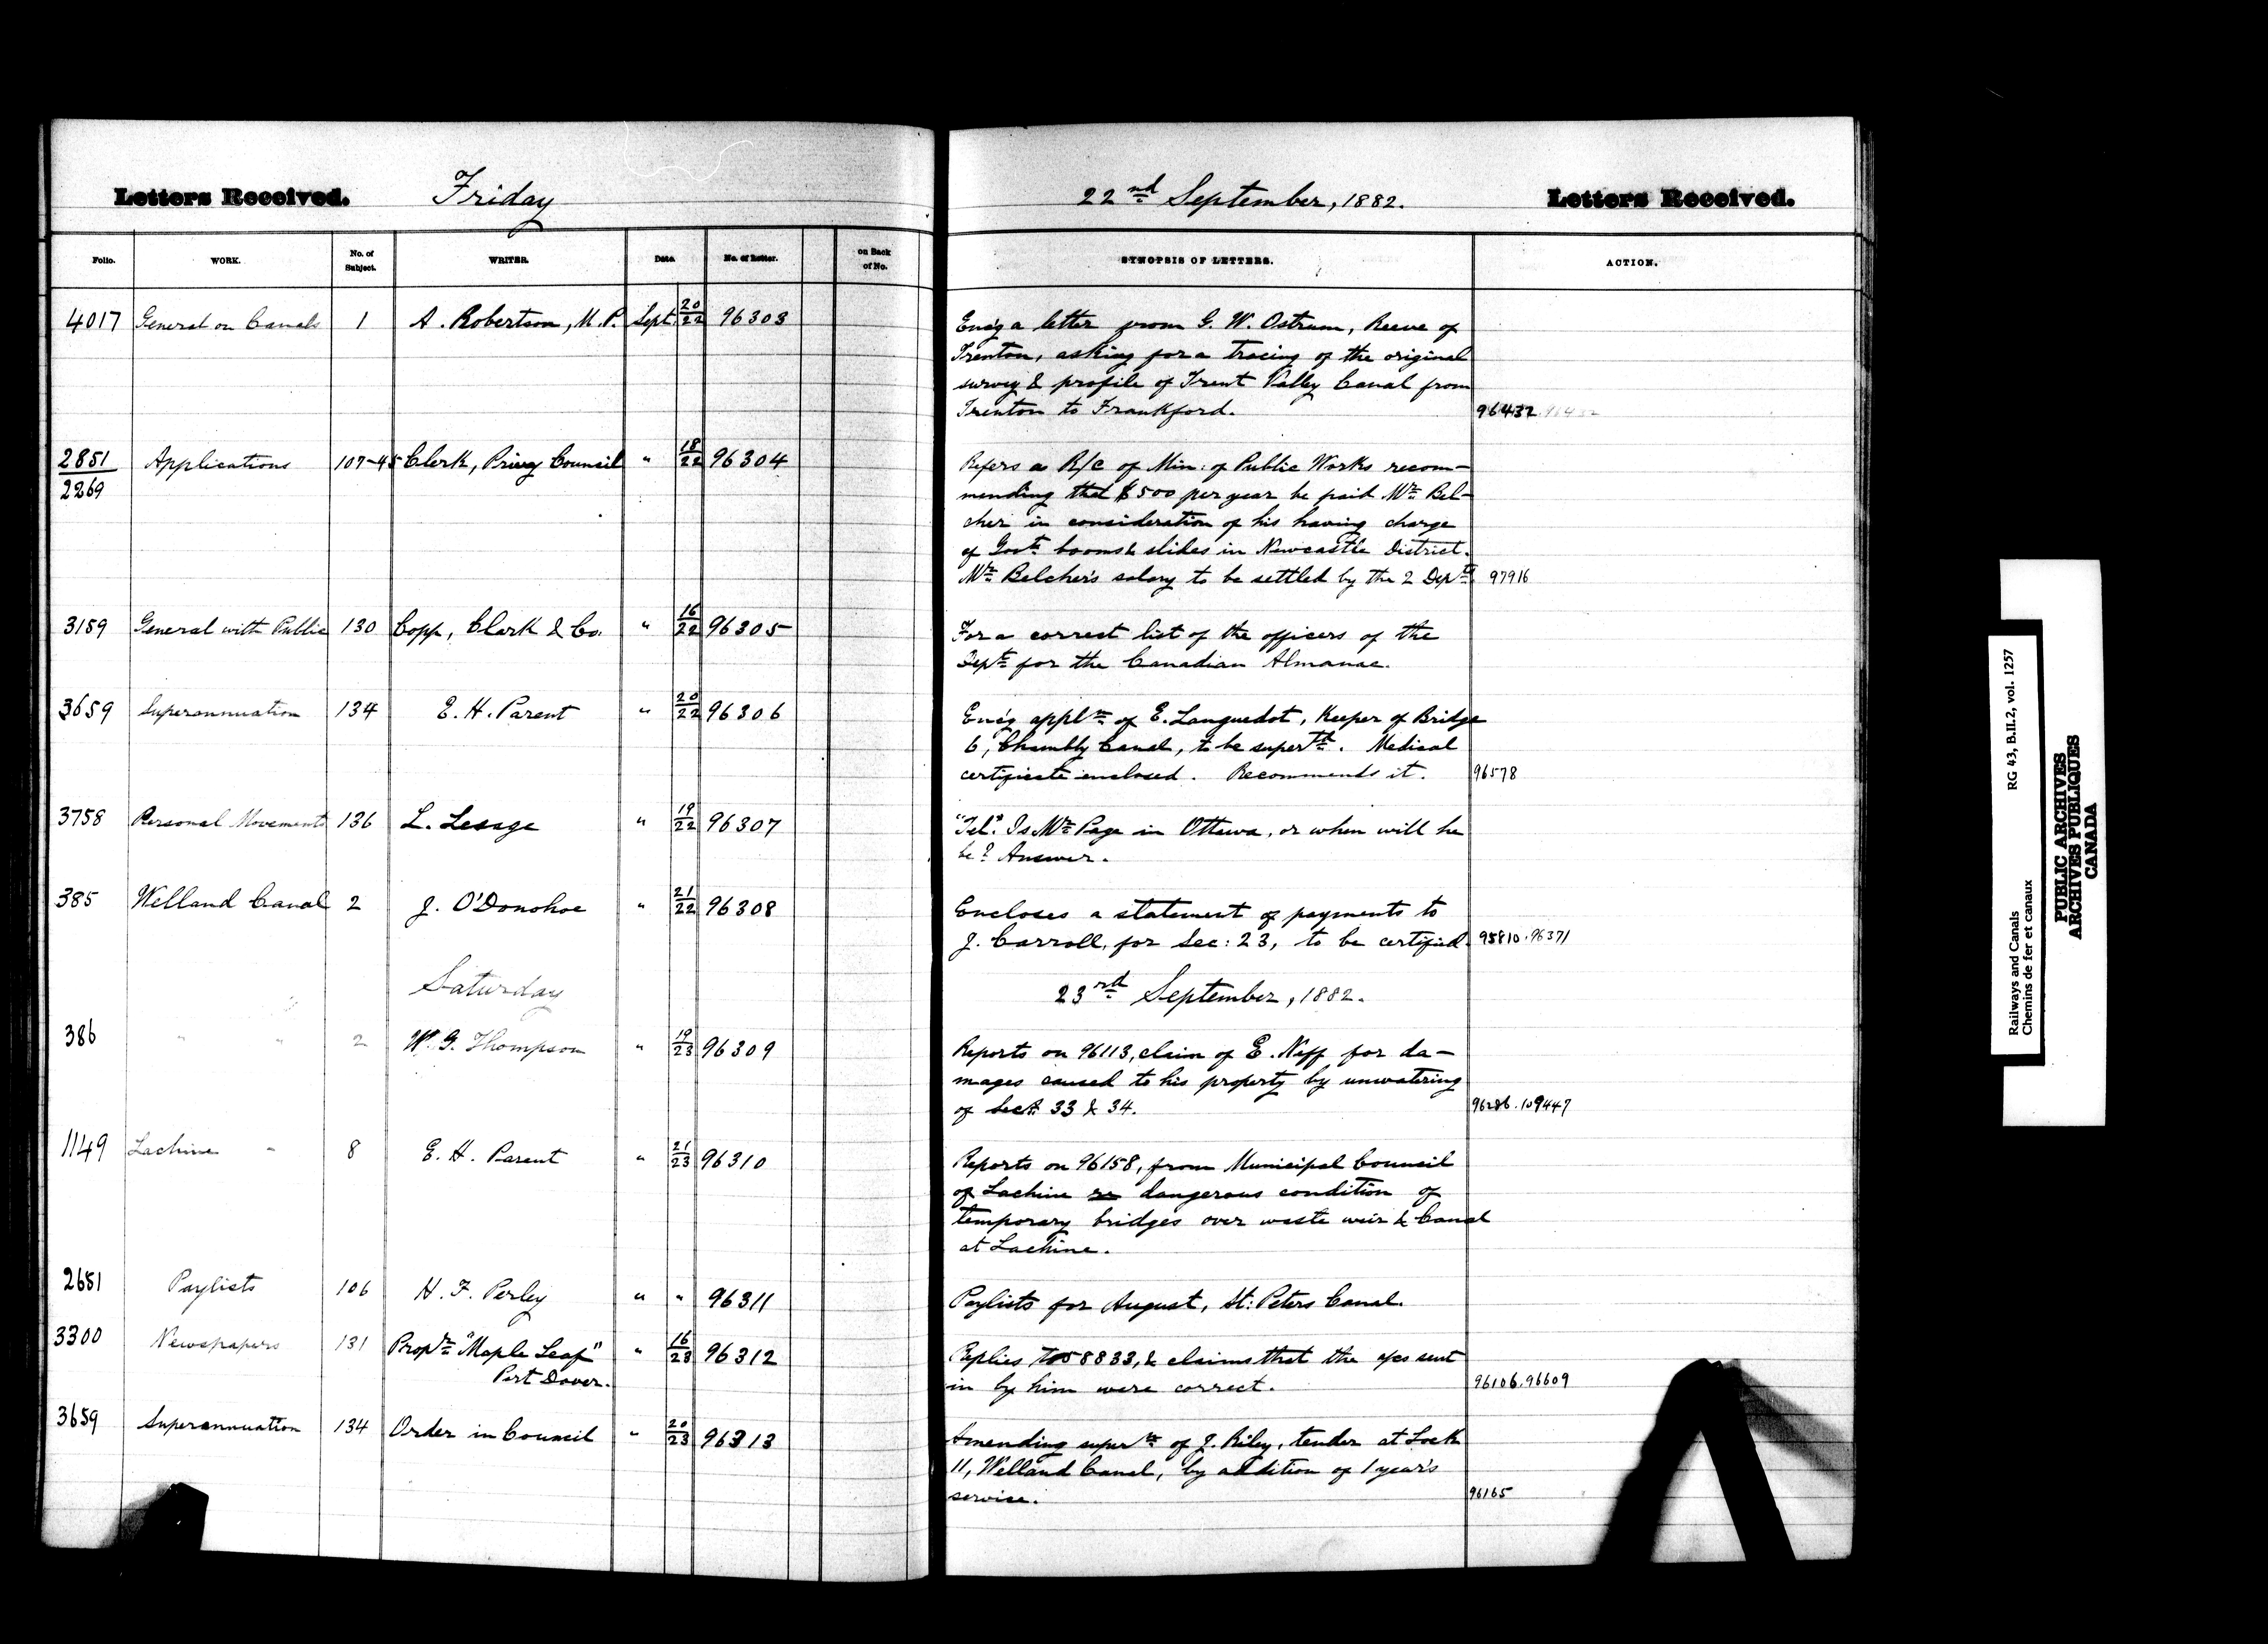 Letters Received. Friday 22nd September, 1882. Letters Received.
Folio. WORK. No. of Subject. WRITER. Date. No. of Letter. on Back of No. SYNOPSIS OF LETTERS. ACTION.
4017 General on Canals 1 A. Robertson, M.P. Sept. 20/22 96303 Enc'g a letter from G. W. Ostrum, Reeve of
Trenton, asking for a tracing of the original
survey & profile of Trent Valley Canal from
Trenton to Frankford. 96432 96432
2851/2269 Applications 107-45 Clerk, Privy Council " 18/22 96304 Refers a R/C of Min: of Public Works recom-
mending that $500 per year be paid Mr. Bel-
cher in consideration of his having charge
of Govt. booms & slides in Newcastle District.
Mr. Belcher's salary to be settled by the 2 Depts. 97916
3159 General with Public 130 Copp, Clark & Co. " 16/22 96305 For a correct list of the officers of the
Dept. for the Canadian Almanac.
3659 Superannuation 134 E. H. Parent " 20/22 96306 Enc'g appln. of E. Languedot, Keeper of Bridge
6, Chambly Canal, to be supertd. Medical
certificate enclosed. Recommends it. 96578
3758 Personal Movements 136 L. Lesage " 19/22 96307 "Tel." Is Mr. Page in Ottawa, or when will he
be? Answer.
385 Welland Canal 2 J. O'Donohoe " 21/22 96308 Encloses a statement of payments to
J. Carroll, for Sec: 23, to be certified. 95810.96371
Saturday 23rd September, 1882.
386 " " 2 W. G. Thompson " 19/23 96309 Reports on 96113, claim of E. Neff for da-
mages caused to his property by unwatering
of Secs. 33 & 34. 96286.109447
1149 Lachine " 8 E. H. Parent " 21/23 96310 Reports on 96158, from Municipal Council
of Lachine re dangerous condition of
temporary bridges over waste weir & Canal
at Lachine.
2651 Paylists 106 H. F. Perley " " 96311 Paylists for August, St: Peters Canal.
3300 Newspapers 131 Propr. "Maple Leaf" " 16/23 96312 Replies to 58833, & claims that the a/cs sent
Port Dover. in by him were correct. 96106.96609
3659 Superannuation 134 Order in Council " 20/23 96313 Amending supern. of J. Riley, tender at Lock
11, Welland Canal, by addition of 1 year's
service. 96165
Railways and Canals RG 43, B.II.2, vol. 1257
Chemins de fer et canaux
PUBLIC ARCHIVES
ARCHIVES PUBLIQUES
CANADA